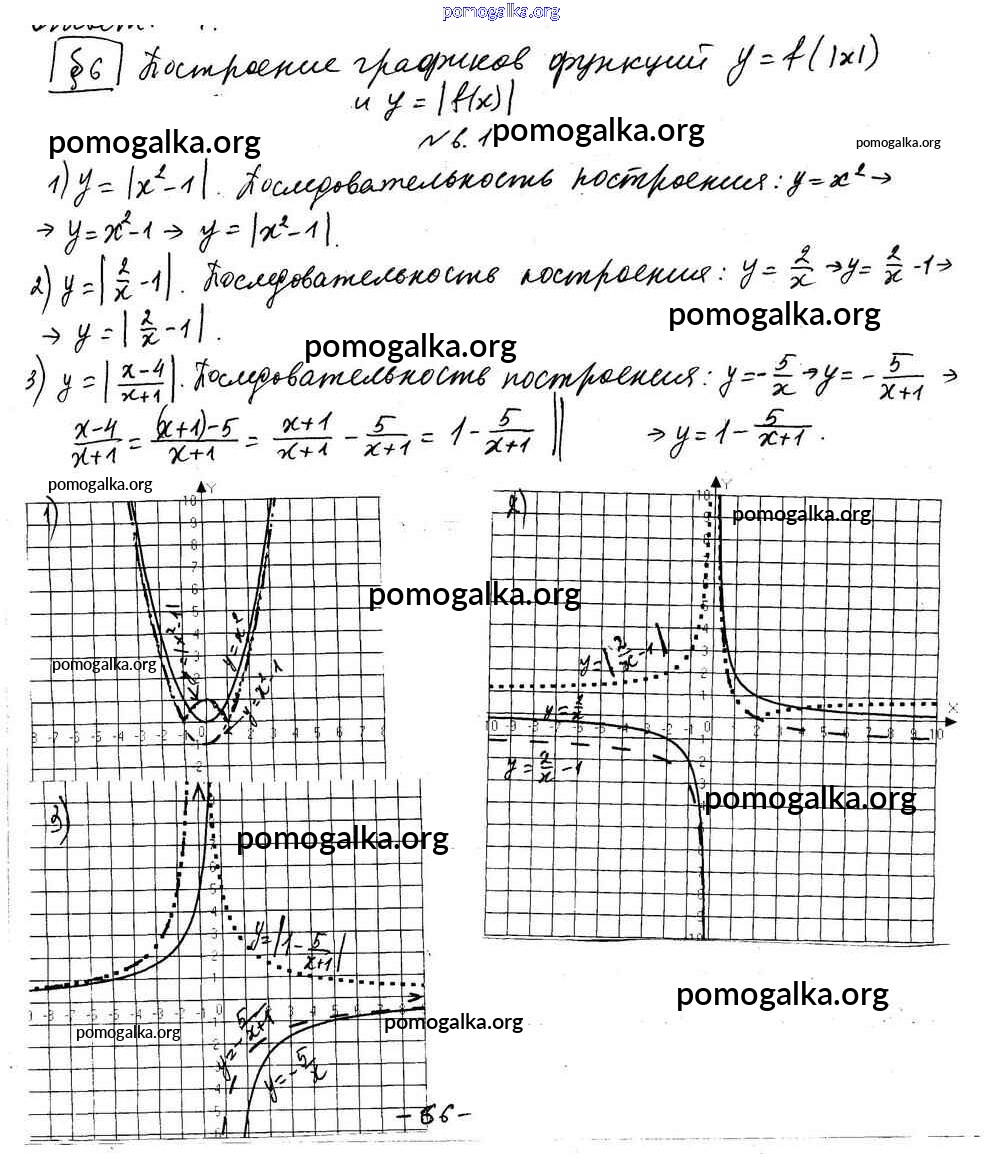 pomogalka.org
§6 Построение графиков функций y = f(|x|)
и y = |f(x)|
pomogalka.org pomogalka.org pomogalka.org
№6.1
1) y = |x² - 1|. Последовательность построения: y = x² →
→ y = x² - 1 → y = |x² - 1|.
2) y = |2/x - 1|. Последовательность построения: y = 2/x → y = 2/x - 1 →
→ y = |2/x - 1|.
pomogalka.org
pomogalka.org
3) y = |(x-4)/(x+1)|. Последовательность построения: y = -5/x → y = -5/(x+1) →
(x-4)/(x+1) = ((x+1)-5)/(x+1) = (x+1)/(x+1) - 5/(x+1) = 1 - 5/(x+1) || → y = 1 - 5/(x+1).
pomogalka.org
1)
2)
pomogalka.org
pomogalka.org
y = |x² - 1|
y = x²
y = x² - 1
pomogalka.org
y = |2/x - 1|
y = 2/x - 1
pomogalka.org
3)
pomogalka.org
y = |1 - 5/(x+1)|
pomogalka.org
pomogalka.org
pomogalka.org
y = -5/(x+1)
y = -5/x